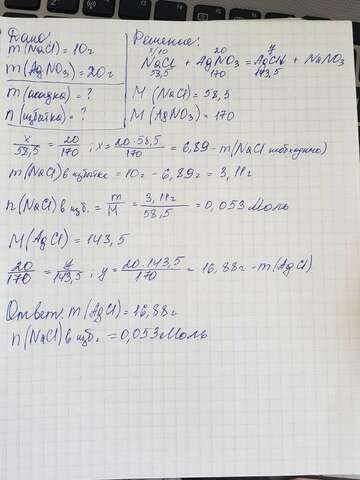 Дано:
m(NaCl)=10г
m(AgNO3)=20г
m(осадка)=?
n(избытка)=?
Решение:
x/10 20 y
NaCl + AgNO3 = AgCl↓ + NaNO3
58,5 170 143,5
M(NaCl)=58,5
M(AgNO3)=170
x/58,5 = 20/170; x = 20·58,5/170 = 6,89 - m(NaCl необходимо)
m(NaCl) в избытке = 10г - 6,89г = 3,11г
n(NaCl) в изб. = m/M = 3,11г/58,5 = 0,053 Моль
M(AgCl) = 143,5
20/170 = y/143,5; y = 20·143,5/170 = 16,88г - m(AgCl)
Ответ: m(AgCl) = 16,88г
n(NaCl) в изб. = 0,053 Моль